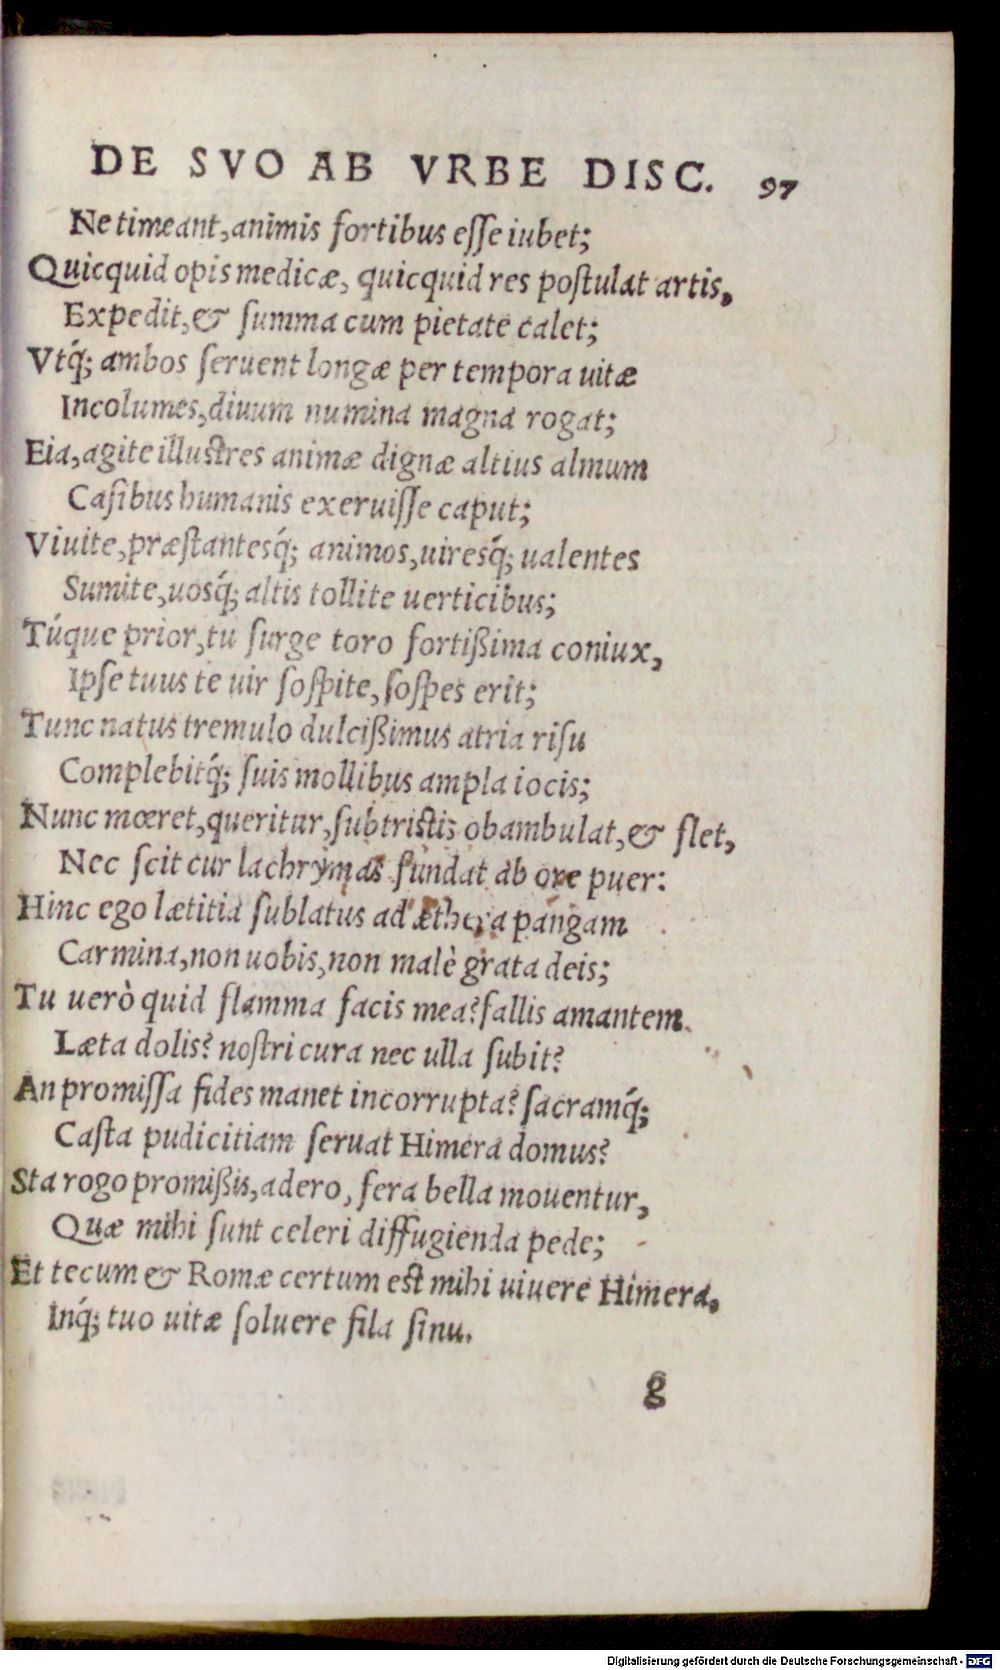 DE SVO AB VRBE DISC. 97
Ne timeant, animis fortibus eſſe iubet;
Quicquid opis medicæ, quicquid res poſtulat artis,
Expedit, & ſumma cum pietate calet;
Vtq́; ambos ſeruent longæ per tempora uitæ
Incolumes, diuum numina magna rogat;
Eia, agite illuſtres animæ dignæ altius almum
Caſibus humanis exeruiſſe caput;
Viuite, præſtantesq́; animos, uiresq́; ualentes
Sumite, uosq́; altis tollite uerticibus;
Túque prior, tu ſurge toro fortißima coniux,
Ipſe tuus te uir ſoſpite, ſoſpes erit;
Tunc natus tremulo dulcißimus atria riſu
Complebitq́; ſuis mollibus ampla iocis;
Nunc mœret, queritur, ſubtriſtis obambulat, & flet,
Nec ſcit cur lachrymas fundat ab ore puer:
Hinc ego lætitia ſublatus ad æthera pangam
Carmina, non uobis, non malè grata deis;
Tu uerò quid flamma facis mea? fallis amantem
Læta dolis? noſtri cura nec ulla ſubit?
An promiſſa fides manet incorrupta? ſacramq́;
Caſta pudicitiam ſeruat Himera domus?
Sta rogo promißis, adero, fera bella mouentur,
Quæ mihi ſunt celeri diffugienda pede;
Et tecum & Romæ certum eſt mihi uiuere Himera,
Inq́; tuo uitæ ſoluere fila ſinu.
g
Digitalisierung gefördert durch die Deutsche Forschungsgemeinschaft - DFG